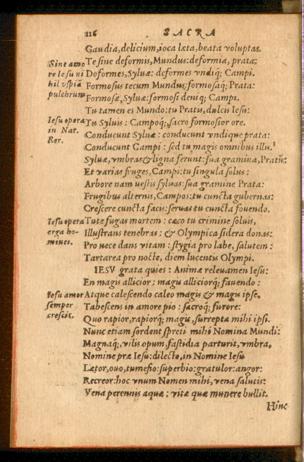 116 SACRA
Gaudia, delicium, ioca læta, beata voluptas.
Sine amore Iesu nihil ospiã pulchrum.
Te sine deformis, Mundus: deformia, prata:
Deformes, Syluæ: deformes vndiq; Campi.
Formosus tecum Mundus; formosaq; Prata:
Formosæ, Syluæ: formosi deniq; Campi.
Tu tamen ei Mundo: tu Pratis, dulcis Iesu:
Iesu opera in Nat. Rer.
Tu Syluis: Campoq;, sacro formosior ore.
Conducunt Syluæ: conducunt vndique prata:
Conducunt Campi: sed tu magis omnibus illis.
Syluæ, vmbras & ligna ferunt: sua gramina, Pratũ:
Et varias fruges, Campi: tu singula solus:
Arbore nam vestis syluas: sua gramine Prata:
Frugibus alternis, Campos: tu cuncta gubernas:
Crescere cuncta facis: seruas tu cuncta fouendo.
Iesu opera erga homines.
Tu te fugas mortem: cæco tu crimine soluis,
Illustrans tenebras: & Olympica sidera donas:
Pro nece dans vitam: stygia pro labe, salutem:
Tartarea pro nocte, diem lucentis Olympi.
IESV grata quies: Anima releuamen Iesu:
En magis allicior: magis alliciorq; fauendo:
Iesu amor semper crescit.
Atque calescendo caleo magis & magis ipse,
Tabescens in amore pio: sacroq; furore:
Quo rapior, rapiorq; magis, surrepta mihi ipsi.
Nunc etiam sordent spreti mihi Nomina Mundi:
Magnaq; vilis opum, fastidia parturit, vmbra,
Nomine præ Iesu: dilecto, in Nomine Iesu
Lætor, ouo, tumesio: superbio: gratulor: angor:
Recreor: hoc vnum Nomen mihi, vena salutis:
Vena perennis aquæ: vitæ quæ munere bullit.
Hinc